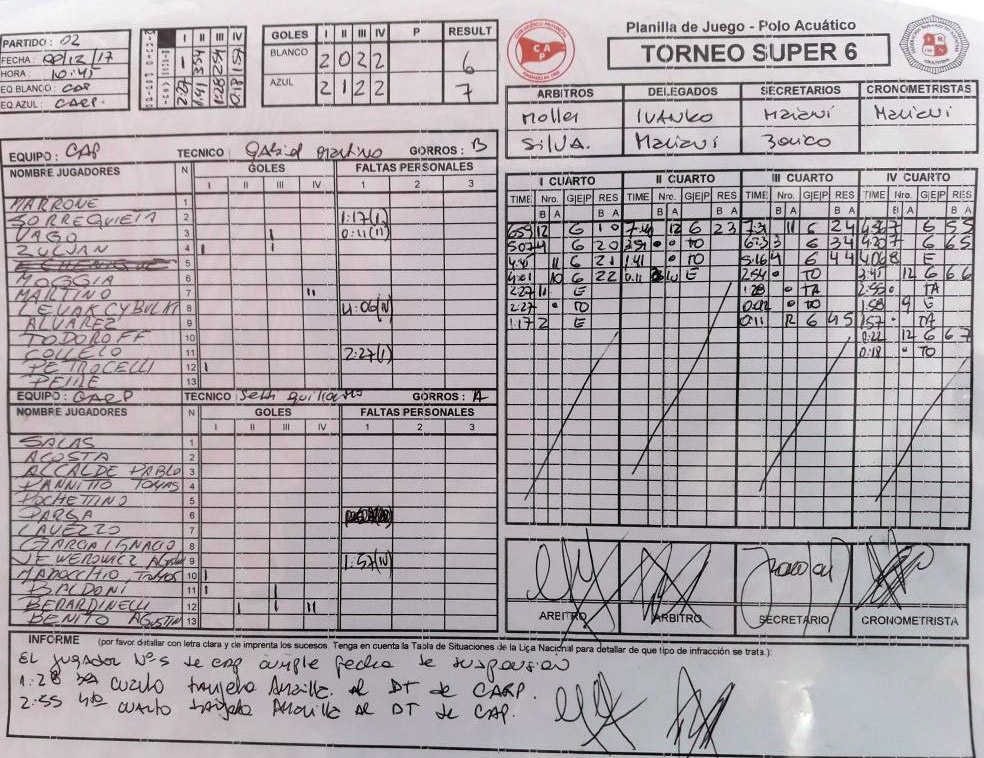 PARTIDO: 02
FECHA: 09/12/17
HORA: 10:45
EQ BLANCO: CAP
EQ AZUL: CARP.
I II III IV
GOLES I II III IV P RESULT
BLANCO 2 0 2 2 6
AZUL 2 1 2 2 7
CAP
Planilla de Juego - Polo Acuático
TORNEO SUPER 6
ARBITROS DELEGADOS SECRETARIOS CRONOMETRISTAS
Moller IVANKO Maiani Mariani
SILVA. Mariani
EQUIPO: CAP TECNICO: Gabriel Martino GORROS: B
NOMBRE JUGADORES N GOLES FALTAS PERSONALES
I II III IV 1 2 3
MARRONE 1
SORREQUIETA 2 1:17(I)
VAGO 3 0:11(II)
ZULJAN 4 I I
5
MOGGIA 6
MARTINO 7 II
LEVAK CYBULAT 8 4:06(IV)
ALVAREZ 9
TODOROFF 10
COLLELO 11 2:27(I)
PETROCELLI 12 I
PEINE 13
EQUIPO: CARP TECNICO GORROS: A
NOMBRE JUGADORES N GOLES FALTAS PERSONALES
I II III IV 1 2 3
SALAS 1
ACOSTA 2
ALCALDE PABLO 3
PANNITTO TOMAS 4
POCHETTINO 5
PARGA 6
LAVEZZO 7
GARCIA IGNACIO 8
9 1:57(IV)
MAROCCHIO, TOMAS 10 I
BALDONI 11 I I
BERARDINELLI 12 I I II
BENITO AGUSTIN 13
I CUARTO II CUARTO III CUARTO IV CUARTO
TIME Nro. G|E|P RES TIME Nro. G|E|P RES TIME Nro. G|E|P RES TIME Nro. G|E|P RES
B A B A B A B A B A B A B A B A
6:59 12 G 1 0 7:44 12 G 2 3 7:31 11 G 2 4 4:56 7 G 5 5
5:07 4 G 2 0 3:54 TO 6:23 3 G 3 4 4:20 7 G 6 5
4:41 11 G 2 1 1:41 TO 5:16 4 G 4 4 4:06 8 E
4:01 10 G 2 2 0:11 E 2:54 TO 3:45 12 G 6 6
2:27 11 E 1:28 TA 2:55 TA
2:27 TO 0:42 TO 1:58 9 E
1:17 2 E 0:11 12 G 4 5 1:57 TA
0:22 12 G 6 7
0:18 TO
ARBITRO ARBITRO SECRETARIO CRONOMETRISTA
INFORME (por favor detallar con letra clara y de imprenta los sucesos. Tenga en cuenta la Tabla de Situaciones de la Liga Nacional para detallar de que tipo de infracción se trata.):
EL jugador Nº5 de CAP cumple fecha de suspension
1:28 3er cuarto tarjeta Amarilla al DT de CARP.
2:55 4to cuarto tarjeta Amarilla al DT de CAP.